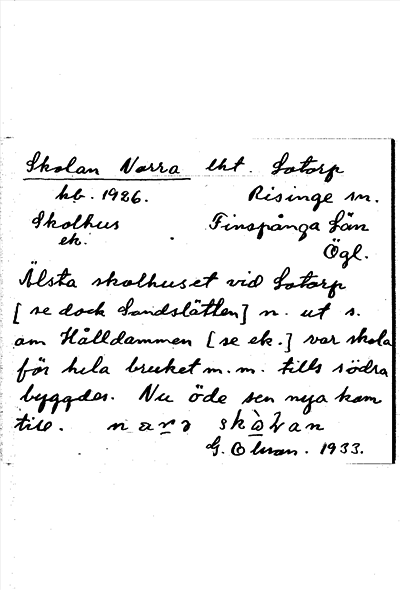 Skolan Norra lht. Sotorp
kb. 1926. Risinge sn.
Skolhus Finspånga Län
ek. Ögl.
Älsta skolhuset vid Sotorp
[se dock Sandslätten] n. ut s.
om Hålldammen [se ek.] var skola
för hela bruket m.m. tills södra
byggdes. Nu öde sen nya kom
till. nara skòlan
G. Olson. 1933.